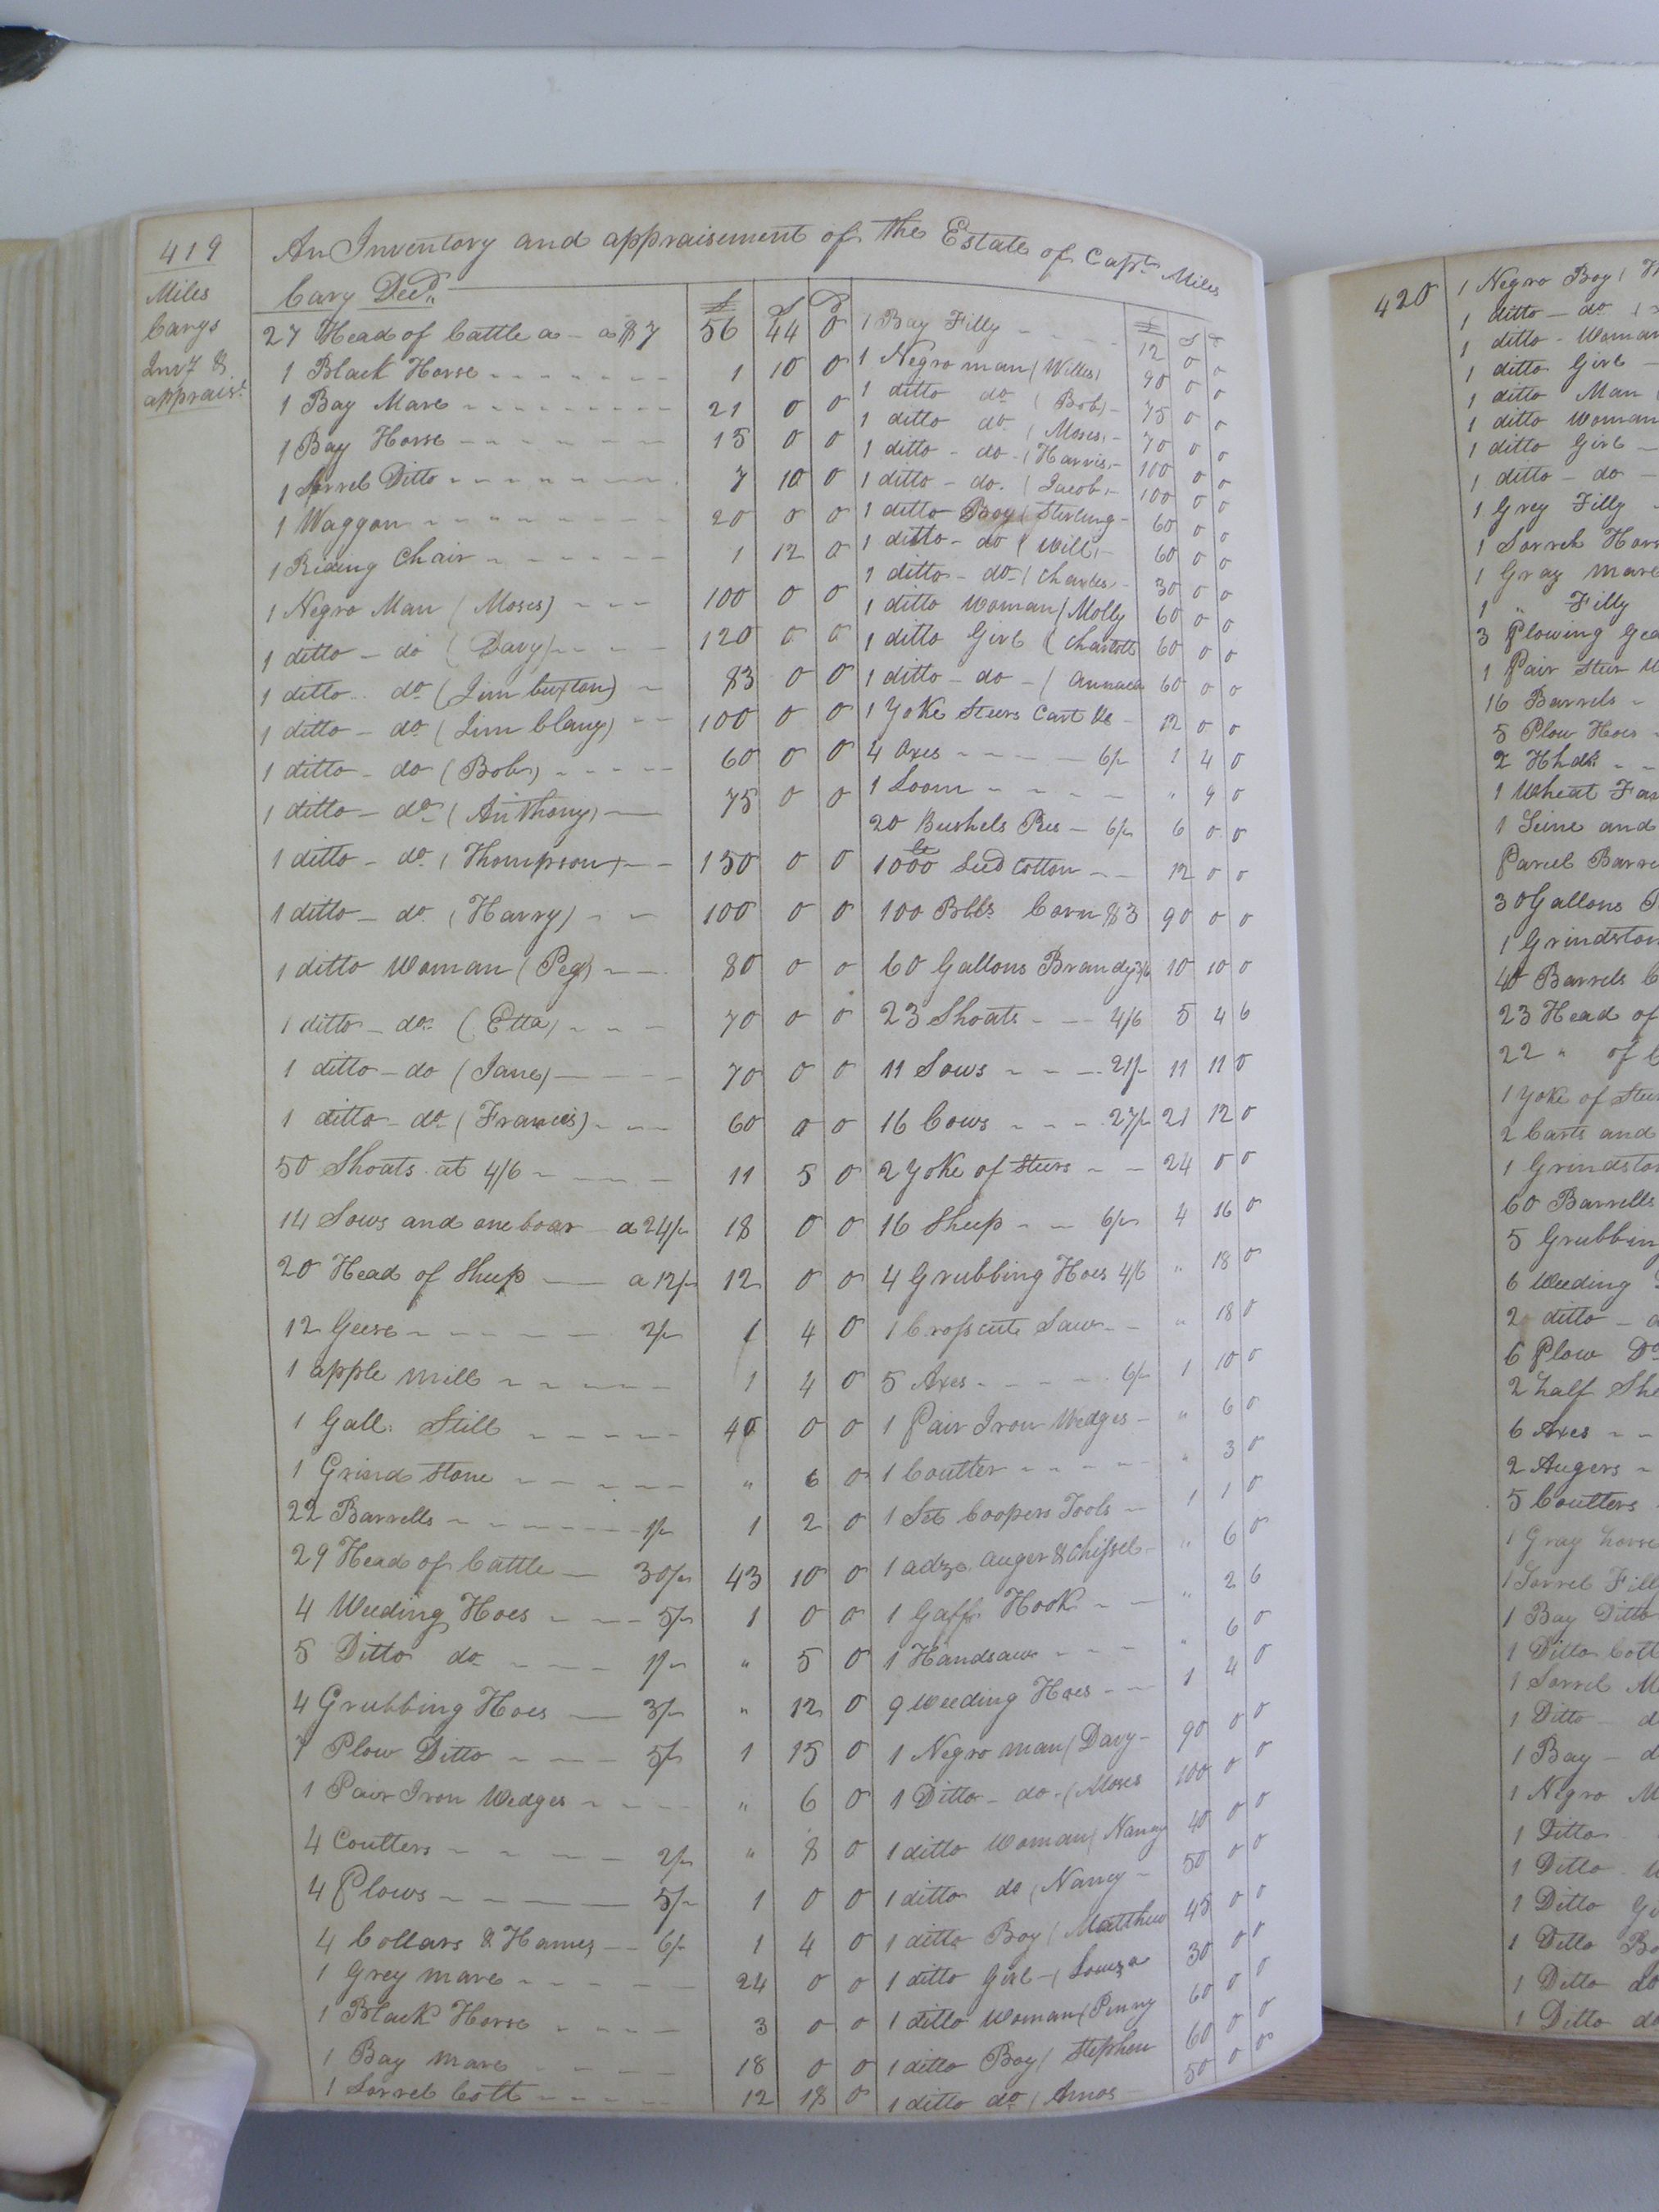 419
Miles
Carys
Invy &
appraist
An Inventory and appraisement of the Estate of Capt. Miles
Cary Decd.
£ S D
27 Head of Cattle a - a $7 56 44 0
1 Black Horse 1 10 0
1 Bay Mare 21 0 0
1 Bay Horse 15 0 0
1 Sorrel Ditto 7 10 0
1 Waggon 20 0 0
1 Riding Chair 1 12 0
1 Negro Man (Moses) 100 0 0
1 ditto - do (Davy) 120 0 0
1 ditto - do (Jim buxton) 83 0 0
1 ditto - do (Jim Clany) 100 0 0
1 ditto - do (Bob) 60 0 0
1 ditto - do (Anthony) 75 0 0
1 ditto - do (Thompson) 150 0 0
1 ditto - do (Harry) 100 0 0
1 ditto Woman (Peg) 80 0 0
1 ditto - do (Etta) 70 0 0
1 ditto - do (Jane) 70 0 0
1 ditto - do (Francis) 60 0 0
50 Shoats at 4/6 11 5 0
14 Sows and one boar a 24/- 18 0 0
20 Head of Sheep a 12/- 12 0 0
12 Geese 2/- 1 4 0
1 apple mill 1 4 0
1 Gall. Still 40 0 0
1 Grind stone " 6 0
22 Barrells 1/- 1 2 0
29 Head of Cattle 30/- 43 10 0
4 Weeding Hoes 5/- 1 0 0
5 Ditto do 1/- " 5 0
4 Grubbing Hoes 3/- " 12 0
7 Plow Ditto 5/- 1 15 0
1 Pair Iron Wedges " 6 0
4 Coulters 2/- " 8 0
4 Plows 5/- 1 0 0
4 Collars & Hames 6/- 1 4 0
1 Grey mare 24 0 0
1 Black Horse 3 0 0
1 Bay mare 18 0 0
1 Sorrel Colt 12 18 0
£ S D
1 Bay Filly 12 0 0
1 Negro man (Willis) 90 0 0
1 ditto do (Bob) 75 0 0
1 ditto do (Moses) 70 0 0
1 ditto - do (Harris) 100 0 0
1 ditto - do. (Jacob) 100 0 0
1 ditto Boy (Sterling 60 0 0
1 ditto - do (Will) 60 0 0
1 ditto - do (Charles 30 0 0
1 ditto Woman (Molly 60 0 0
1 ditto Girl (Charlotte 60 0 0
1 ditto - do - ( 60 0 0
1 Yoke Steers Cart &c 12 0 0
4 Axes 6/- 1 4 0
1 Loom " 9 0
20 Bushels Pees 6/- 6 0 0
1000 lb Seed Cotton 12 0 0
100 Bbls Corn $3 90 0 0
60 Gallons Brandy 3/6 10 10 0
23 Shoats 4/6 5 4 6
11 Sows 21/- 11 11 0
16 Cows 27/- 21 12 0
2 Yoke of Steers 24 0 0
16 Sheep 6/- 4 16 0
4 Grubbing Hoes 4/6 " 18 0
1 Crosscute Saw " 18 0
5 Axes 6/- 1 10 0
1 Pair Iron Wedges " 6 0
1 Coulter " 3 0
1 Set Coopers Tools 1 1 0
1 adze auger & Chissel " 6 0
1 Gaff Hook " 2 6
1 Handsaw " 6 0
9 Weeding Hoes 1 4 0
1 Negro man (Davy 90 0 0
1 Ditto - do - (Moses 100 0 0
1 ditto Woman (Nancy 40 0 0
1 ditto do (Nancy 50 0 0
1 ditto Boy (Matthew 45 0 0
1 ditto Girl (Louiza 30 0 0
1 ditto Woman (Penny 60 0 0
1 ditto Boy (Stephen 60 0 0
1 ditto do (Amos 50 0 0
420
1 Negro Boy (
1 ditto - do (
1 ditto - Woman
1 ditto Girl
1 ditto Man
1 ditto Woman
1 ditto Girl
1 ditto - do
1 Grey Filly
1 Sorrel Hors
1 Gray mare
1 " Filly
3 Plowing Gea
1 Pair Steer
16 Barrels
5 Plow Hoes
2 Hhds
1 Wheat Fan
1 Seine and
Parcel Barre
30 Gallons
1 Grindston
40 Barrels
23 Head of
22 " of
1 Yoke of Stee
2 Carts and
1 Grindston
60 Barrells
5 Grubbing
6 Weeding
2 ditto
6 Plow Do
2 half She
6 Axes
2 Augers
5 Coulters
1 Gray horse
1 Sorrel Fill
1 Bay Ditto
1 Ditto Colt
1 Sorrel M
1 Ditto d
1 Bay - d
1 Negro M
1 Ditto
1 Ditto
1 Ditto G
1 Ditto Bo
1 Ditto do
1 Ditto do